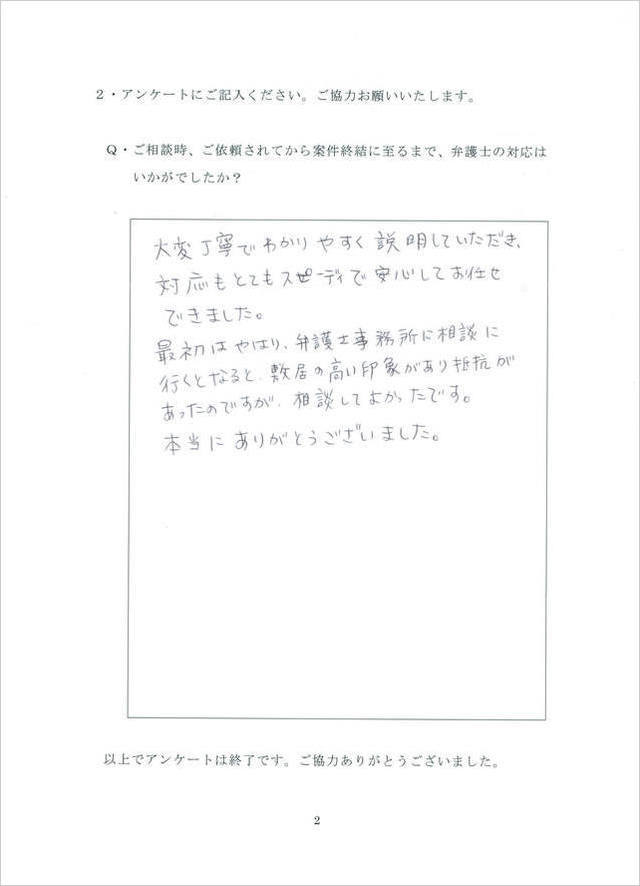 ２・アンケートにご記入ください。ご協力お願いいたします。
Ｑ・ご相談時、ご依頼されてから案件終結に至るまで、弁護士の対応は
いかがでしたか？
大変丁寧でわかりやすく説明していただき、
対応もとてもスピーディで安心してお任せ
できました。
最初はやはり、弁護士事務所に相談に
行くとなると、敷居の高い印象があり抵抗が
あったのですが、相談してよかったです。
本当にありがとうございました。
以上でアンケートは終了です。ご協力ありがとうございました。
2